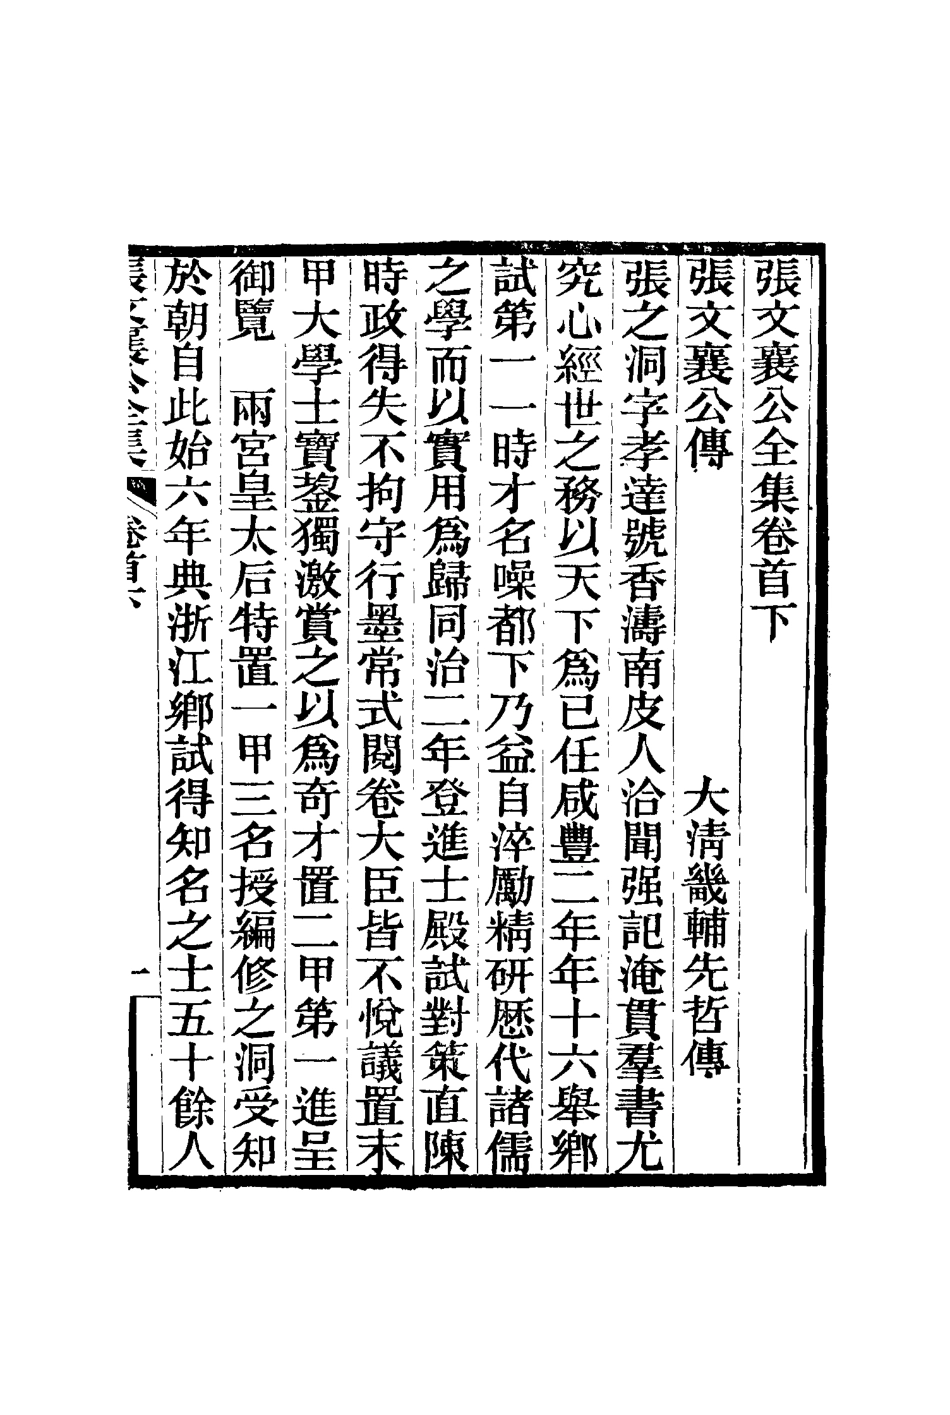 張文襄公全集卷首下
張文襄公傳　大清畿輔先哲傳
張之洞字孝達號香濤南皮人洽聞强記淹貫羣書尤
究心經世之務以天下爲已任咸豐二年年十六舉鄉
試第一一時才名噪都下乃益自淬勵精研歷代諸儒
之學而以實用爲歸同治二年登進士殿試對策直陳
時政得失不拘守行墨常式閱卷大臣皆不悅議置末
甲大學士寶鋆獨激賞之以爲奇才置二甲第一進呈
御覽　兩宮皇太后特置一甲三名授編修之洞受知
於朝自此始六年典浙江鄉試得知名之士五十餘人
張文襄公全集　卷首下　一